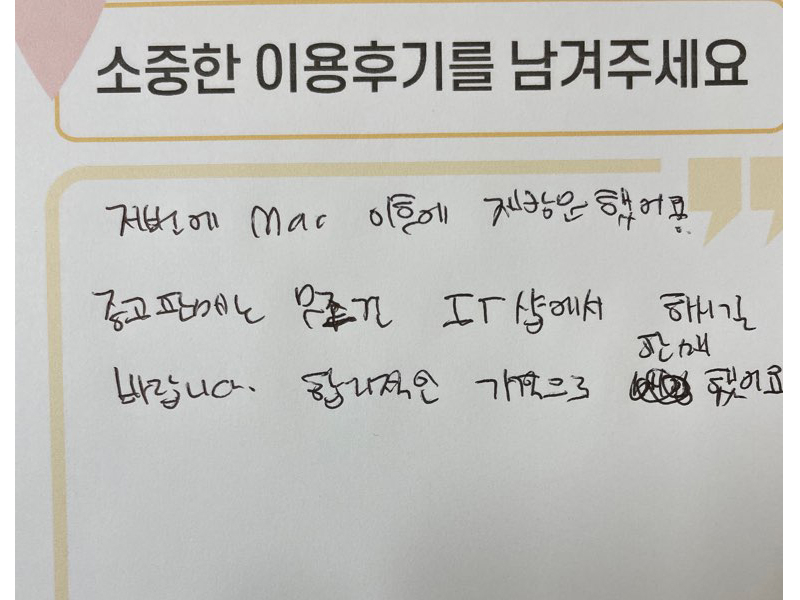 소중한 이용후기를 남겨주세요
저번에 Mac 이후에 재방문 했어요.
중고판매는 무조건 IT샵에서 하시길
판매
바랍니다. 합리적인 가격으로 했어요